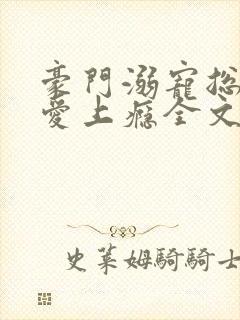 豪門溺寵総
愛上癮全文
史莱姆騎騎士